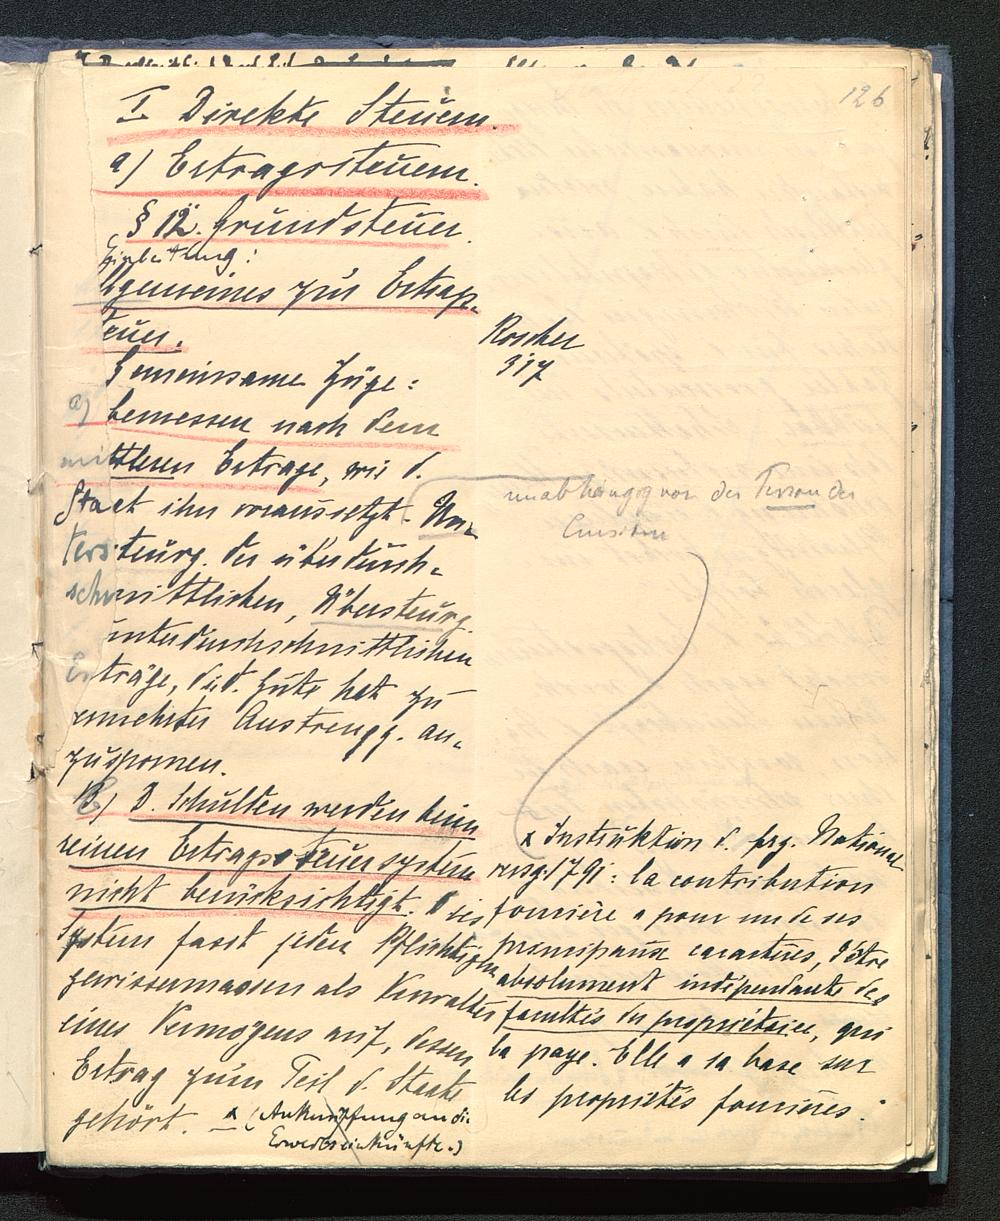 126
I. Direkte Steuern.
a) Ertragssteuern.
§ 12. Grundsteuer.
Einleitung:
Allgemeines zur Ertrags-
steuer.
Gemeinsame Züge:
a) bemessen nach dem
mittleren Ertrage, wie d.
Staat ihn voraussetzt. Un-
terSteurg. der überdurch-
schnittlichen, Übersteurg.
unterdurchschnittlichen
Erträge, die d. Güte hat zu
vermehrter Anstrengg. an-
zuspornen.
b) D. Schulden werden beim
reinen Ertragssteuersystem
nicht berücksichtigt. Dies
System fasst jeden Pflichtigen
gewissermassen als Verwalter
eines Vermögens auf, dessen
Ertrag zum Teil d. Staate
gehört. x (Anknüpfung an die
Erwerbseinkünfte.)
Roscher
317
unabhängig von der Person des
Censiten
x Instruktion d. frz. National
versg. 1791: la contribution
foncière a pour un de ses
principaux caractères, d'être
absolument indépendante des
facultés du propriétaire, qui
la paye. Elle a sa base sur
les propriétés foncières.